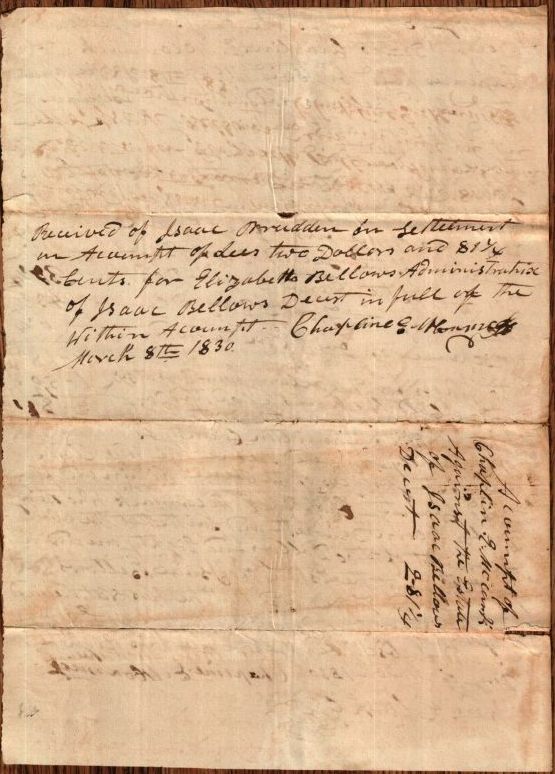 Received of Isaac Prudden in Settlement
on Acoumpt of dees two Dollars and 81 1/4
Cents for Elizabeth Bellows Administratrix
of Isaac Bellows Decest in full of the
Within Acoumpt Chapline E
March 8th 1830
Acoumpt of
Chaplin E
Against the Estate
of Isaac Bellows
Decest 2 81 1/4